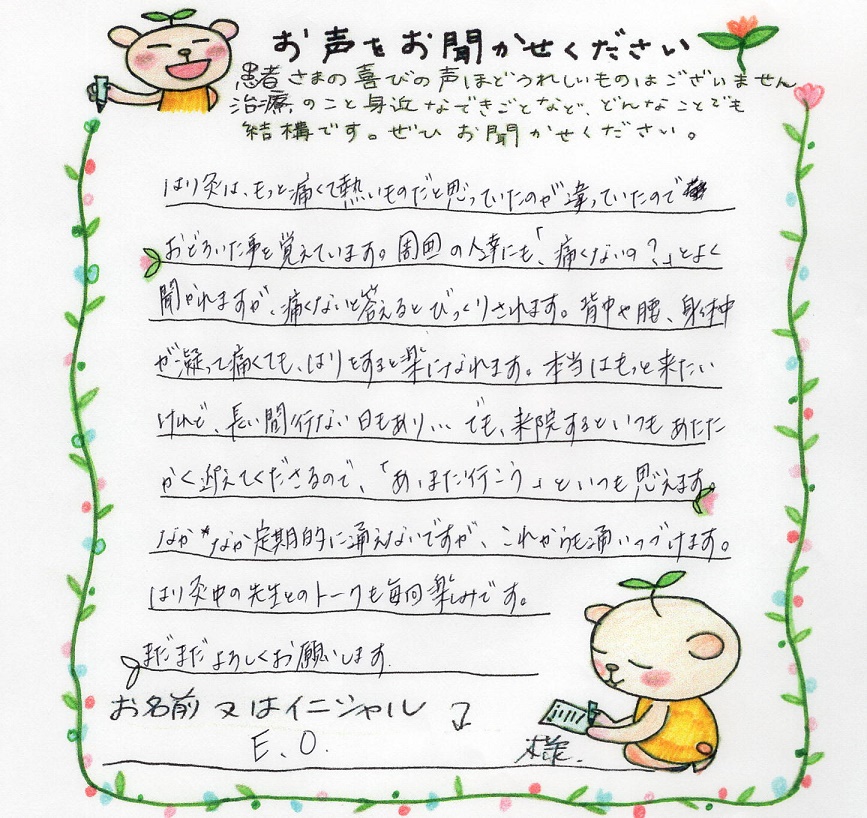 お声をお聞かせください
患者さまの喜びの声ほどうれしいものはございません
治療のこと身近なできごとなど、どんなことでも
結構です。ぜひお聞かせください。
はり灸は、もっと痛くて熱いものだと思っていたのが違っていたので
おどろいた事を覚えています。周囲の人達にも「痛くないの?」とよく
聞かれますが、痛くないと答えるとびっくりされます。背中や腰、身体中
が凝って痛くても、はりをすると楽になれます。本当はもっと来たい
けれど、長い間行けない日もあり… でも、来院するといつもあたた
かく迎えてくださるので、「あ、また行こう」といつも思えます。
なかなか定期的に通えないですが、これからも通いつづけます。
はり灸中の先生とのトークも毎回楽しみです。
まだまだよろしくお願いします.
お名前又はイニシャル
E.O. 様.